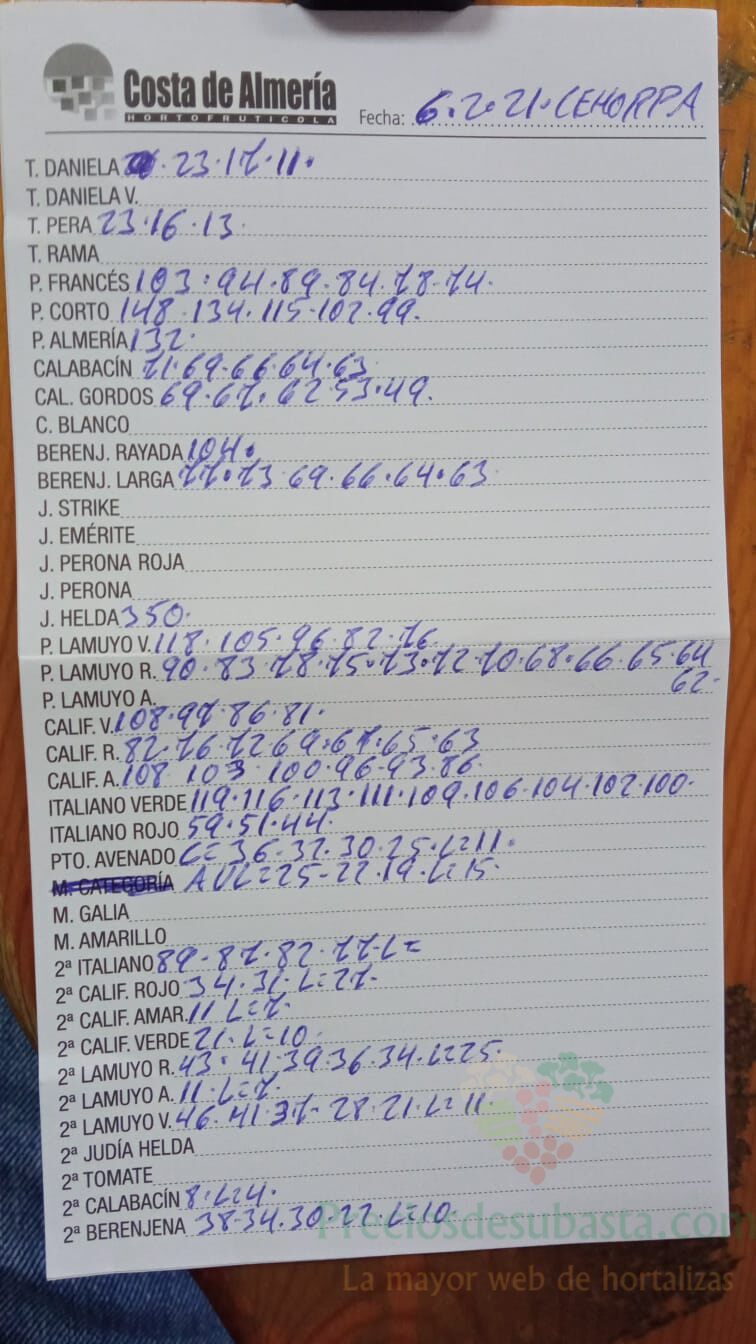 Costa de Almería
HORTOFRUTICOLA
Fecha: 6.2.21.CEHORPA
T. DANIELA 23.17.11.
T. DANIELA V.
T. PERA 23.16.13.
T. RAMA
P. FRANCÉS 103.94.89.84.78.74.
P. CORTO 148.134.115.102.99.
P. ALMERÍA 132.
CALABACÍN 71.69.66.64.63
CAL. GORDOS 69.67.62 53.49.
C. BLANCO
BERENJ. RAYADA 104.
BERENJ. LARGA 77.73 69.66.64.63
J. STRIKE
J. EMÉRITE
J. PERONA ROJA
J. PERONA
J. HELDA 350.
P. LAMUYO V. 118.105.96.82.76
P. LAMUYO R. 90.83.78.75.73.72.70.68.66.65.64
62.
P. LAMUYO A.
CALIF. V. 108.97.86.81.
CALIF. R. 82.76.72 69.67.65.63
CALIF. A. 108 103.100.96.93.86.
ITALIANO VERDE 119.116.113.111.109.106.104.102.100.
ITALIANO ROJO 59.51.44.
PTO. AVENADO C=36.32.30.25.L=11.
M. CATEGORÍA AVL=25-22.19.L=15.
M. GALIA
M. AMARILLO
2ª ITALIANO 89.87.82.77.L=
2ª CALIF. ROJO 34.31.L=27.
2ª CALIF. AMAR. 11.L=7.
2ª CALIF. VERDE 21.L=10.
2ª LAMUYO R. 43.41.39.36.34.L=25.
2ª LAMUYO A. 11.L=7.
2ª LAMUYO V. 46.41.37-28.21.L=11.
2ª JUDÍA HELDA
2ª TOMATE
2ª CALABACÍN 8.L=4.
2ª BERENJENA 38.34.30.22.L=10.
Preciosdesubasta.com
La mayor web de hortalizas